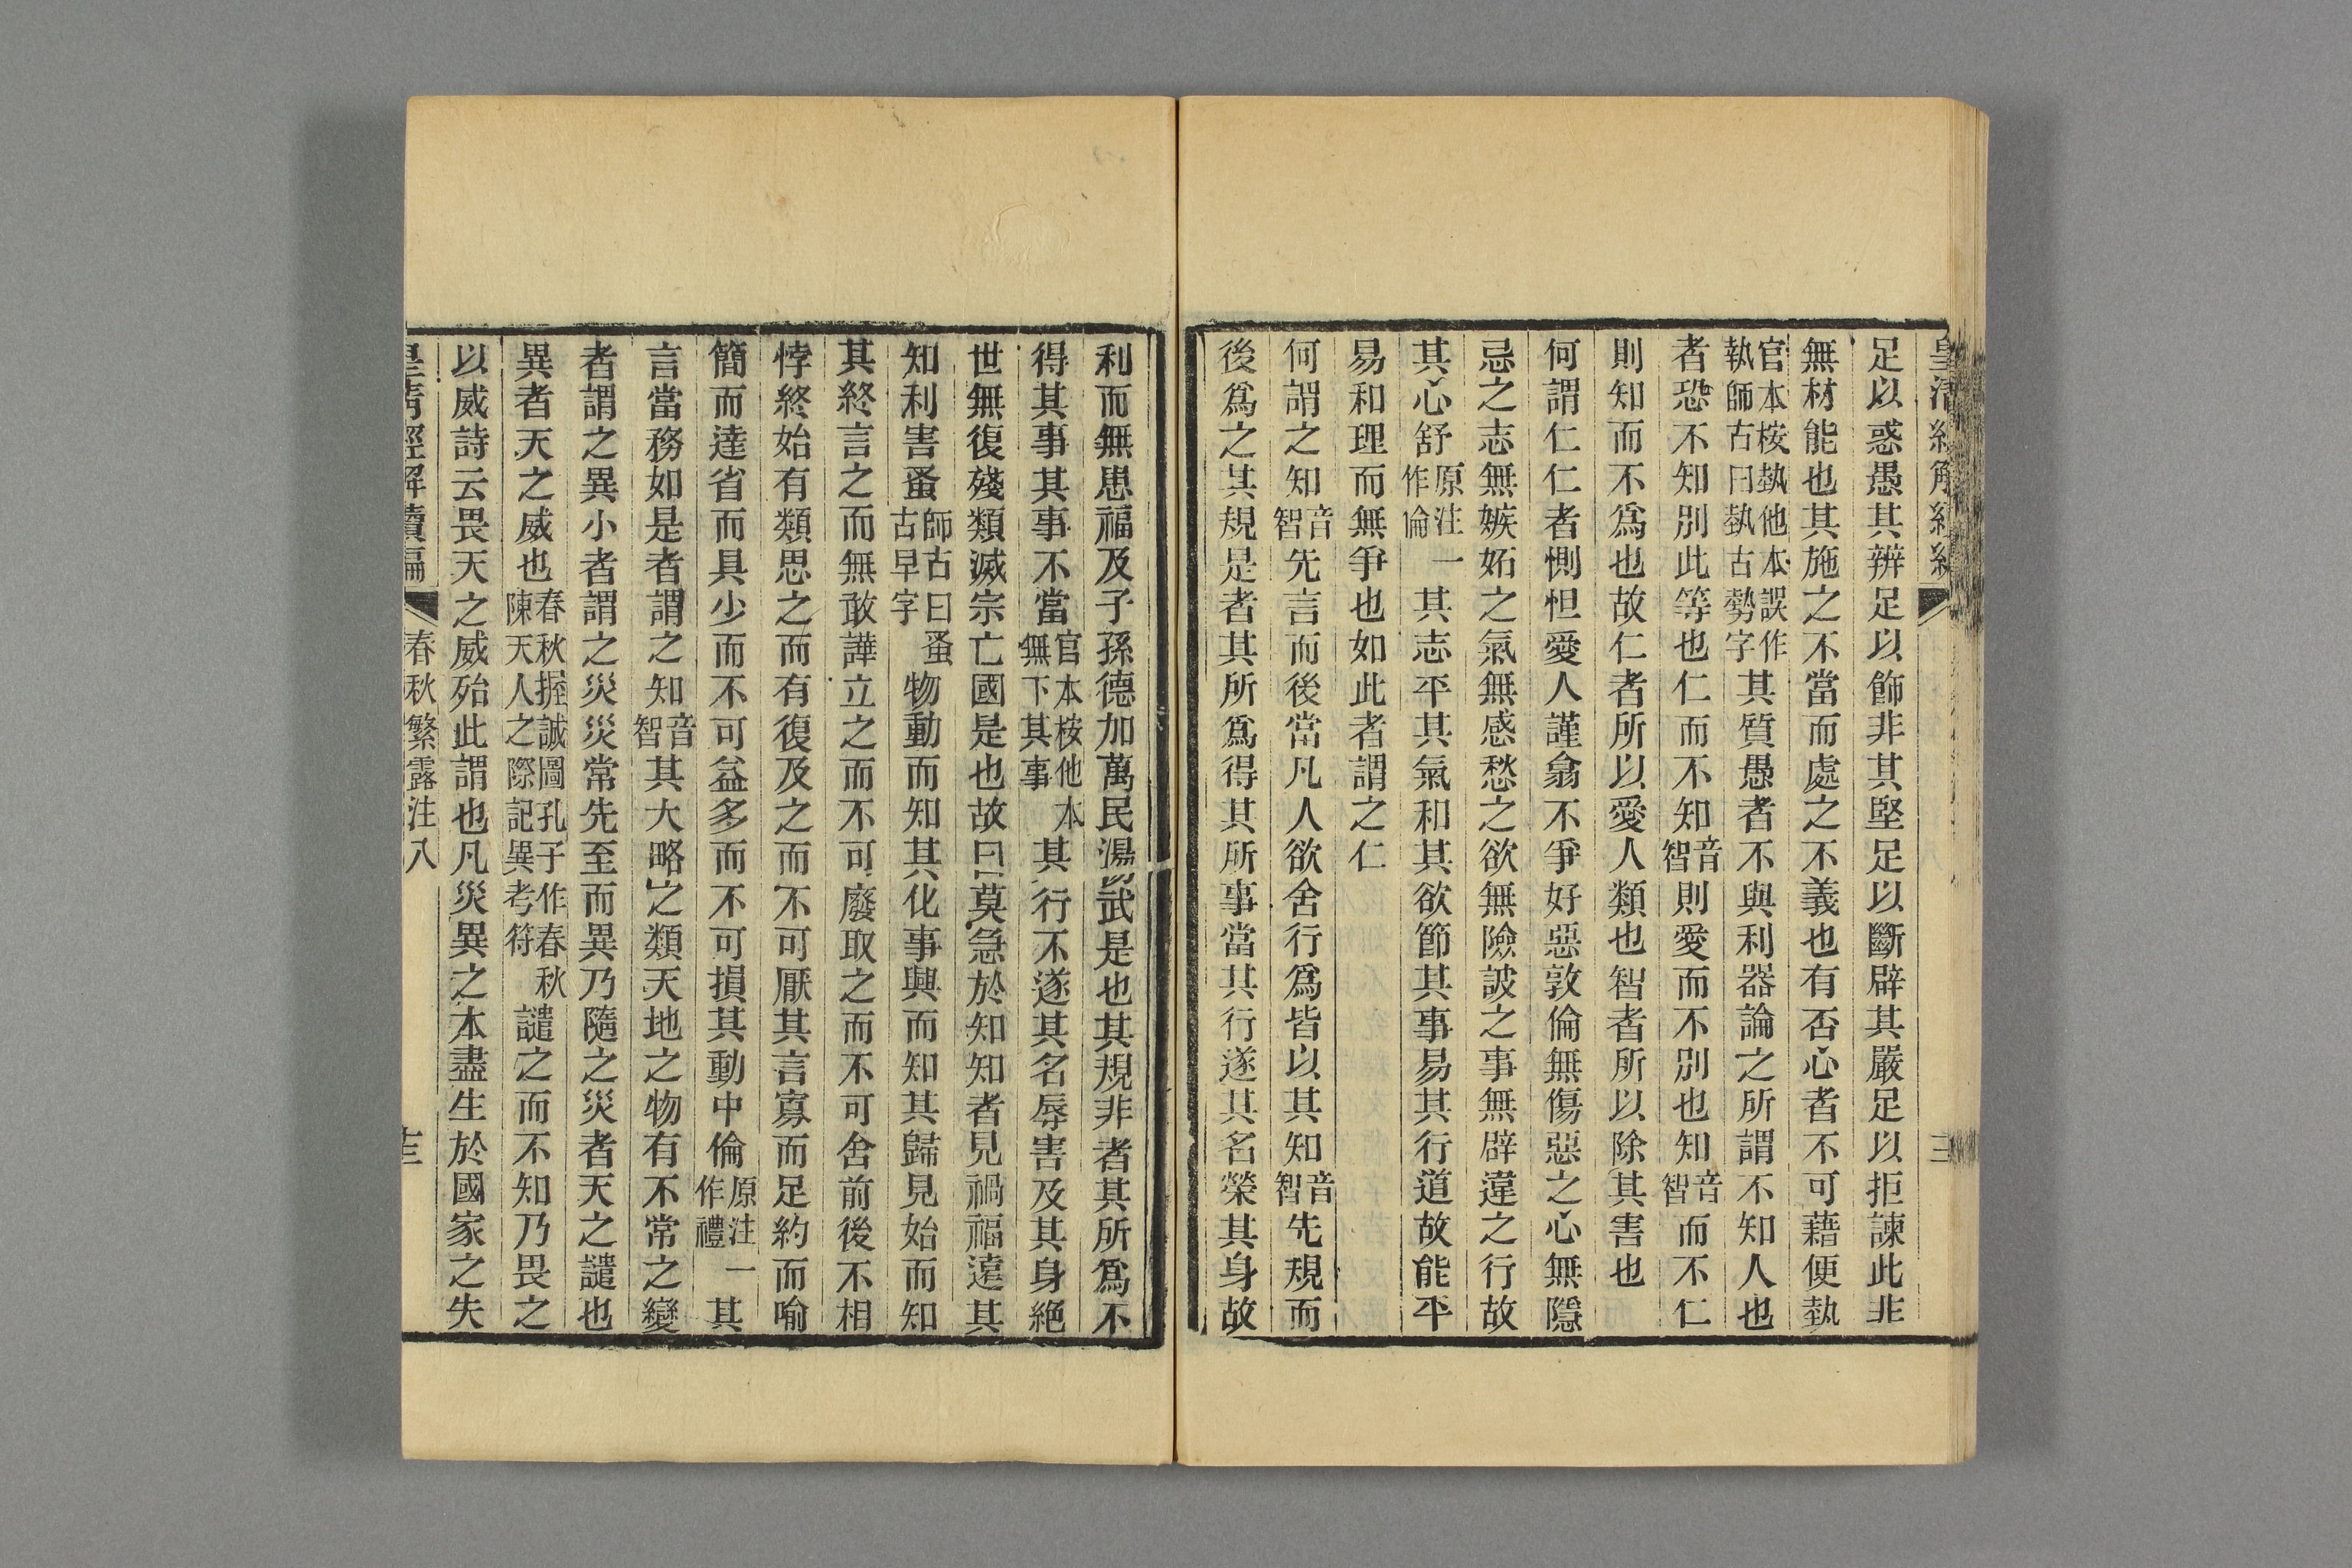 足以惑愚其辨足以飾非其堅足以斷辟其嚴足以拒諫此非
無材能也其施之不當而處之不義也有否心者不可藉便埶
官本桉埶他本誤作
執師古曰埶古勢字
其質愚者不與利器論之所謂不知人也
者恐不知別此等也仁而不知
音
智
則愛而不別也知
音
智
而不仁
則知而不爲也故仁者所以愛人類也智者所以除其害也
何謂仁仁者惻怛愛人謹翕不爭好惡敦倫無傷惡之心無隱
忌之志無嫉妬之氣無感愁之欲無險詖之事無辟違之行故
其心舒
原注一
作倫
其志平其氣和其欲節其事易其行道故能平
易和理而無爭也如此者謂之仁
何謂之知
音
智
先言而後當凡人欲舍行爲皆以其知
音
智
先規而
後爲之其規是者其所爲得其所事當其行遂其名榮其身故
利而無患福及子孫德加萬民湯武是也其規非者其所爲不
得其事其事不當
官本桉他本
無下其事
其行不遂其名辱害及其身絕
世無復殘類滅宗亡國是也故曰莫急於知知者見禍福遠其
知利害蚤
師古曰蚤
古早字
物動而知其化事興而知其歸見始而知
其終言之而無敢譁立之而不可廢取之而不可舍前後不相
悖終始有類思之而有復及之而不可厭其言寡而足約而喻
簡而達省而具少而不可益多而不可損其動中倫
原注一
作禮
其
言當務如是者謂之知
音
智
其大略之類天地之物有不常之變
者謂之異小者謂之災災常先至而異乃隨之災者天之譴也
異者天之威也
春秋握誠圖孔子作春秋
陳天人之際記異考符
譴之而不知乃畏之
以威詩云畏天之威殆此謂也凡災異之本盡生於國家之失
皇清經解續編
春秋繁露注八